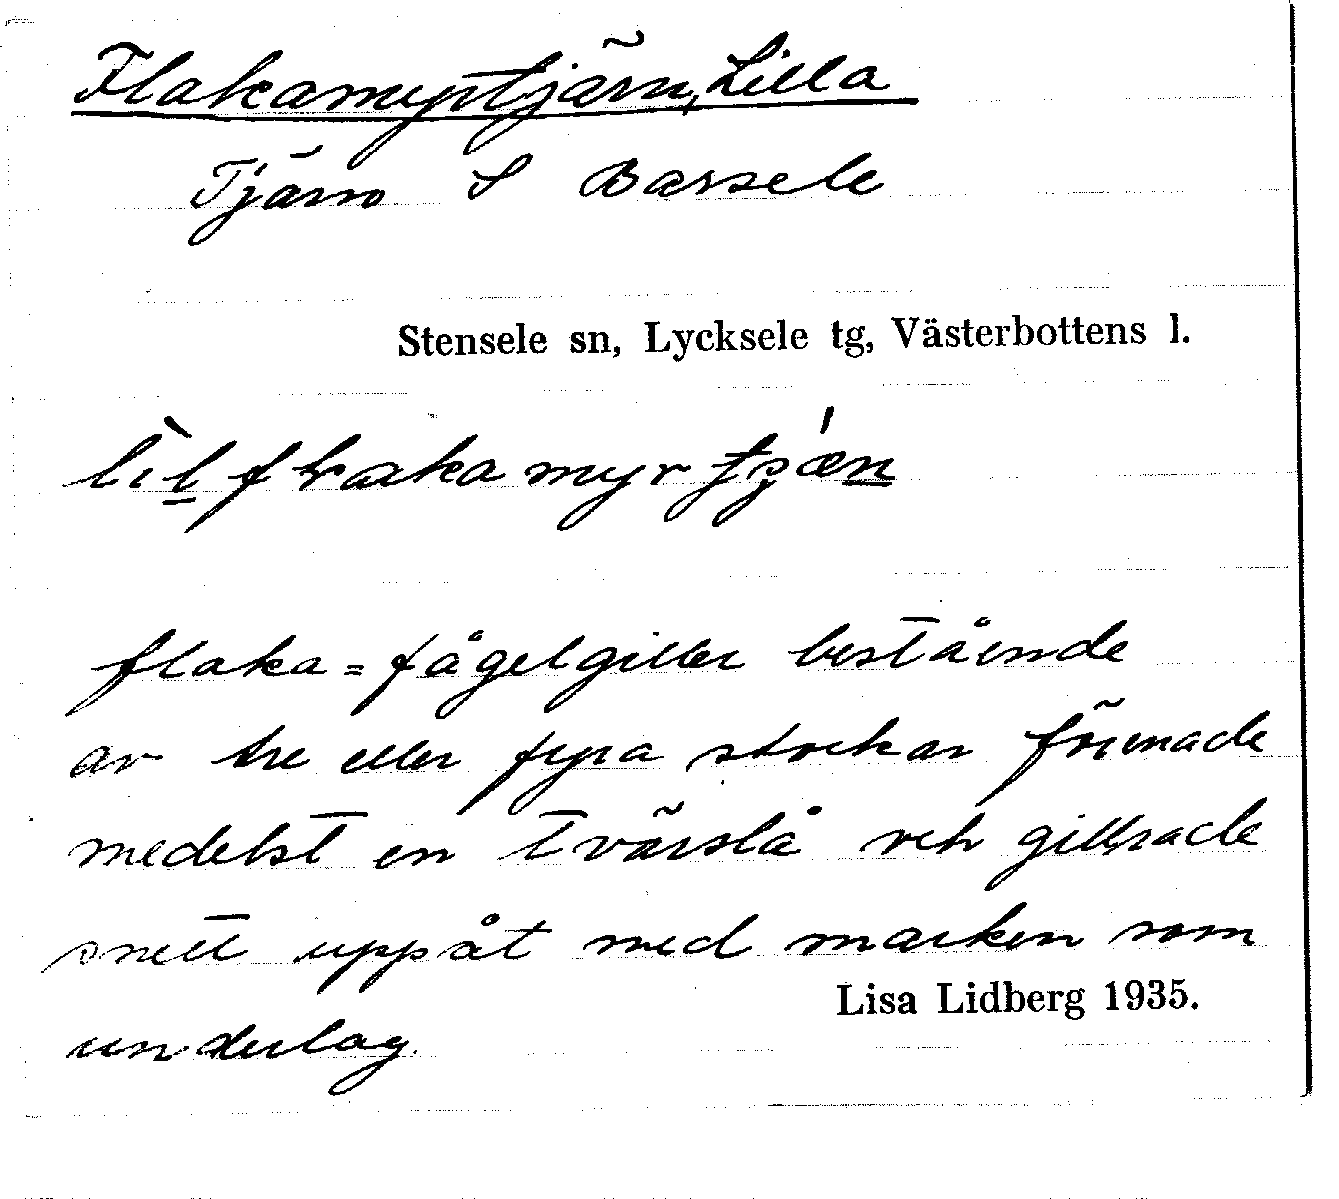 Flakamyrtjärn, Lilla
Tjärn S Barsele
Stensele sn, Lycksele tg, Västerbottens l.
flaka = fågelgiller bestående
av tre eller fyra stockar förenade
medelst en tvärslå och gillrade
snett uppåt med marken som
Lisa Lidberg 1935.
underlag.